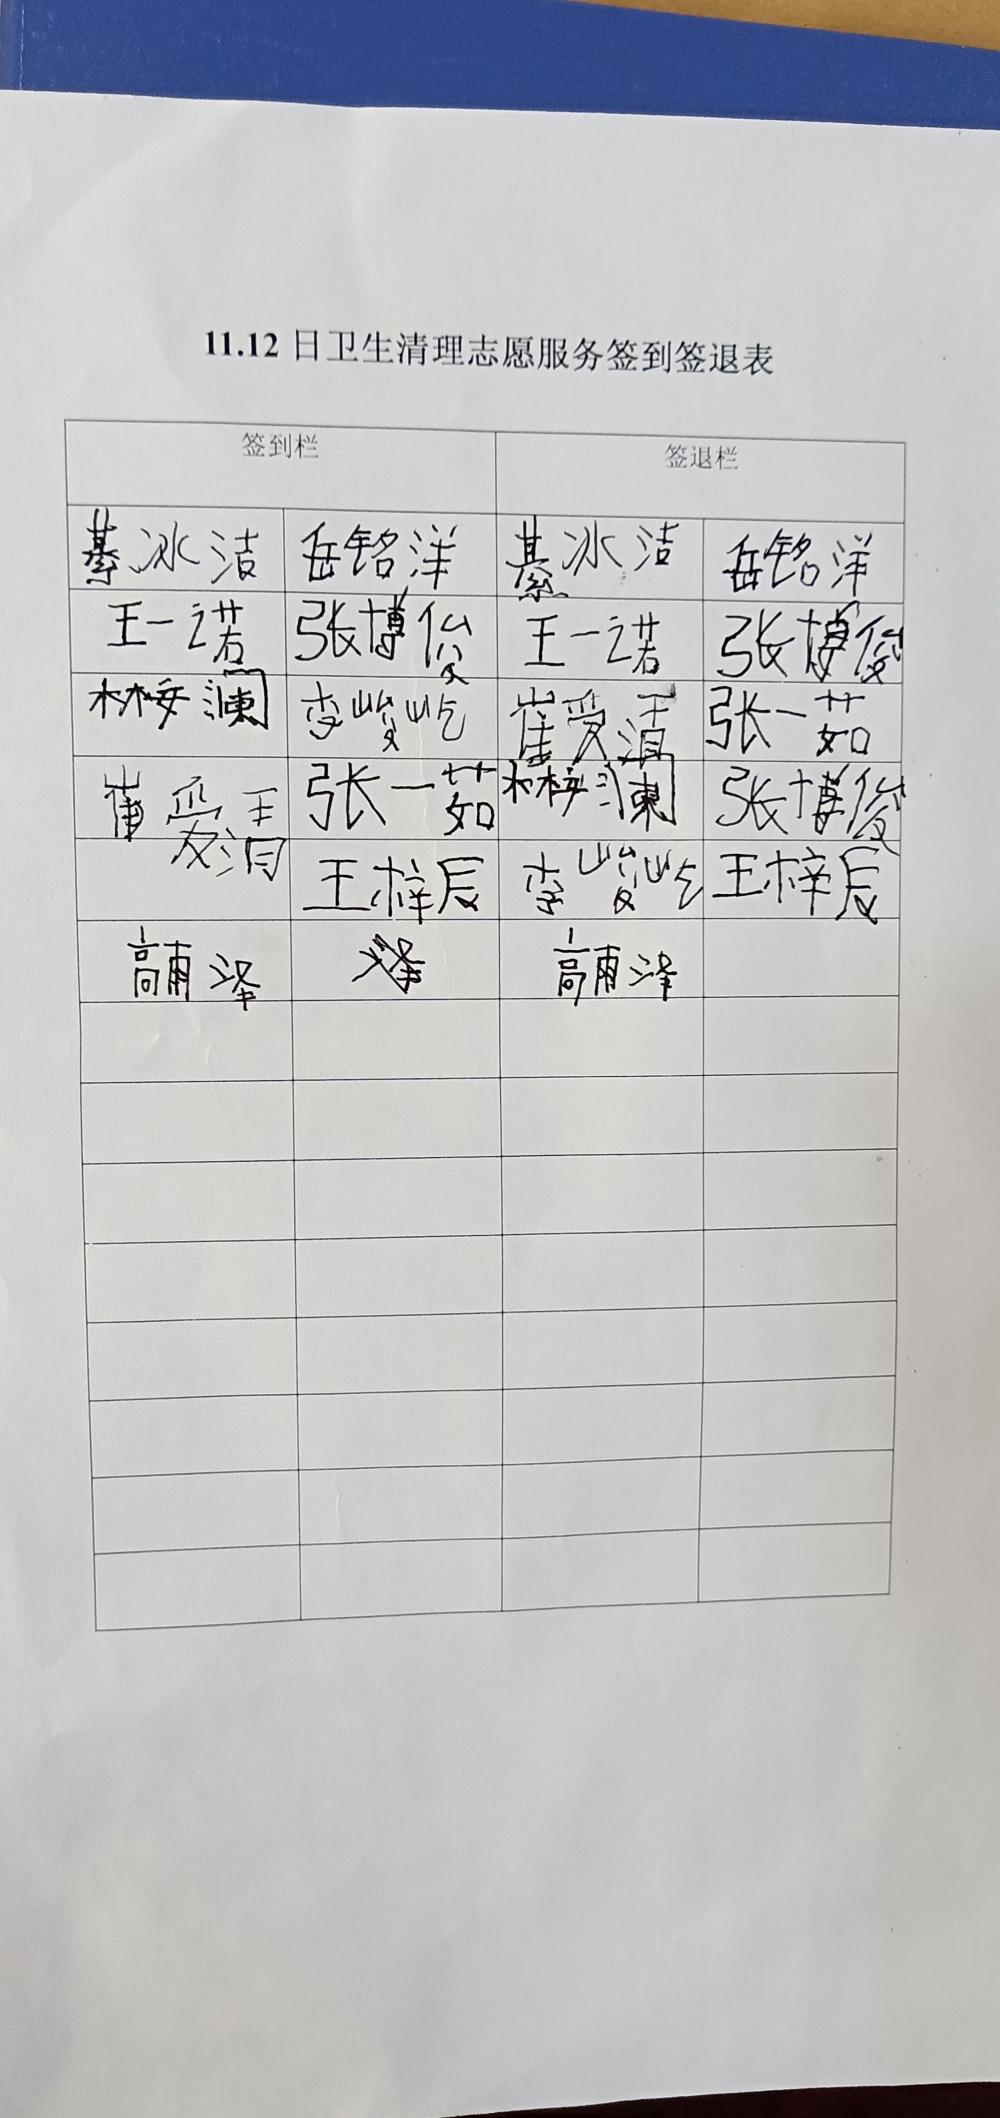 11.12 日卫生清理志愿服务签到签退表
签到栏 签退栏
綦冰洁 岳铭洋 綦冰洁 岳铭洋
王一诺 张博俊 王一诺 张博俊
林桉澜 李峻屹 崔爱清 张一茹
崔爱清 张一茹 林桉澜 张博俊
王梓辰 李峻屹 王梓辰
高雨泽 高雨泽